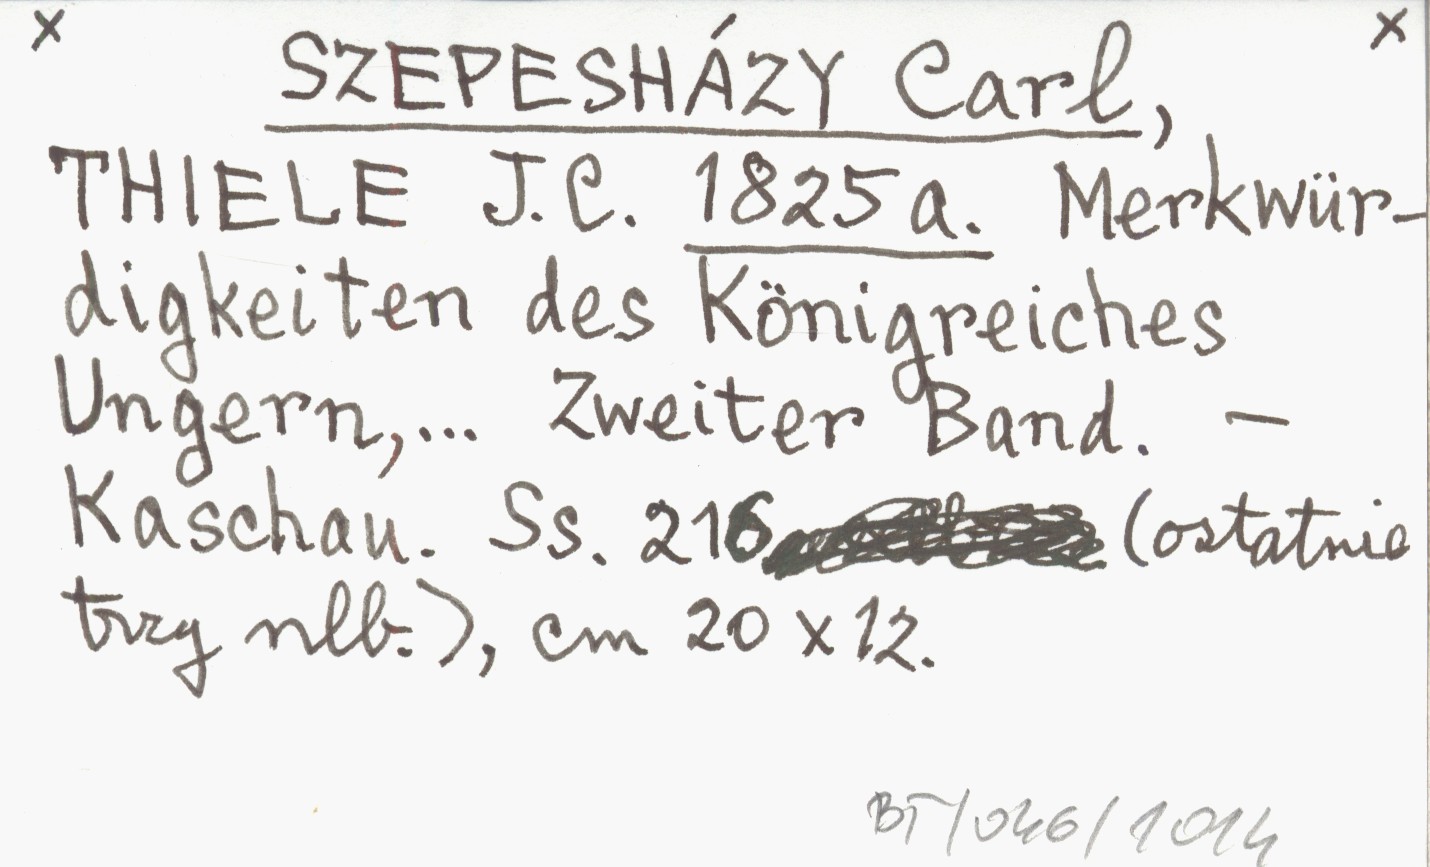 x x
SZEPESHÁZY Carl,
THIELE J.C. 1825a. Merkwür-
digkeiten des Königreiches
Ungern,... Zweiter Band. —
Kaschau. Ss. 216 (ostatnie
trzy nlb.), cm 20 x 12.
BT/046/1014